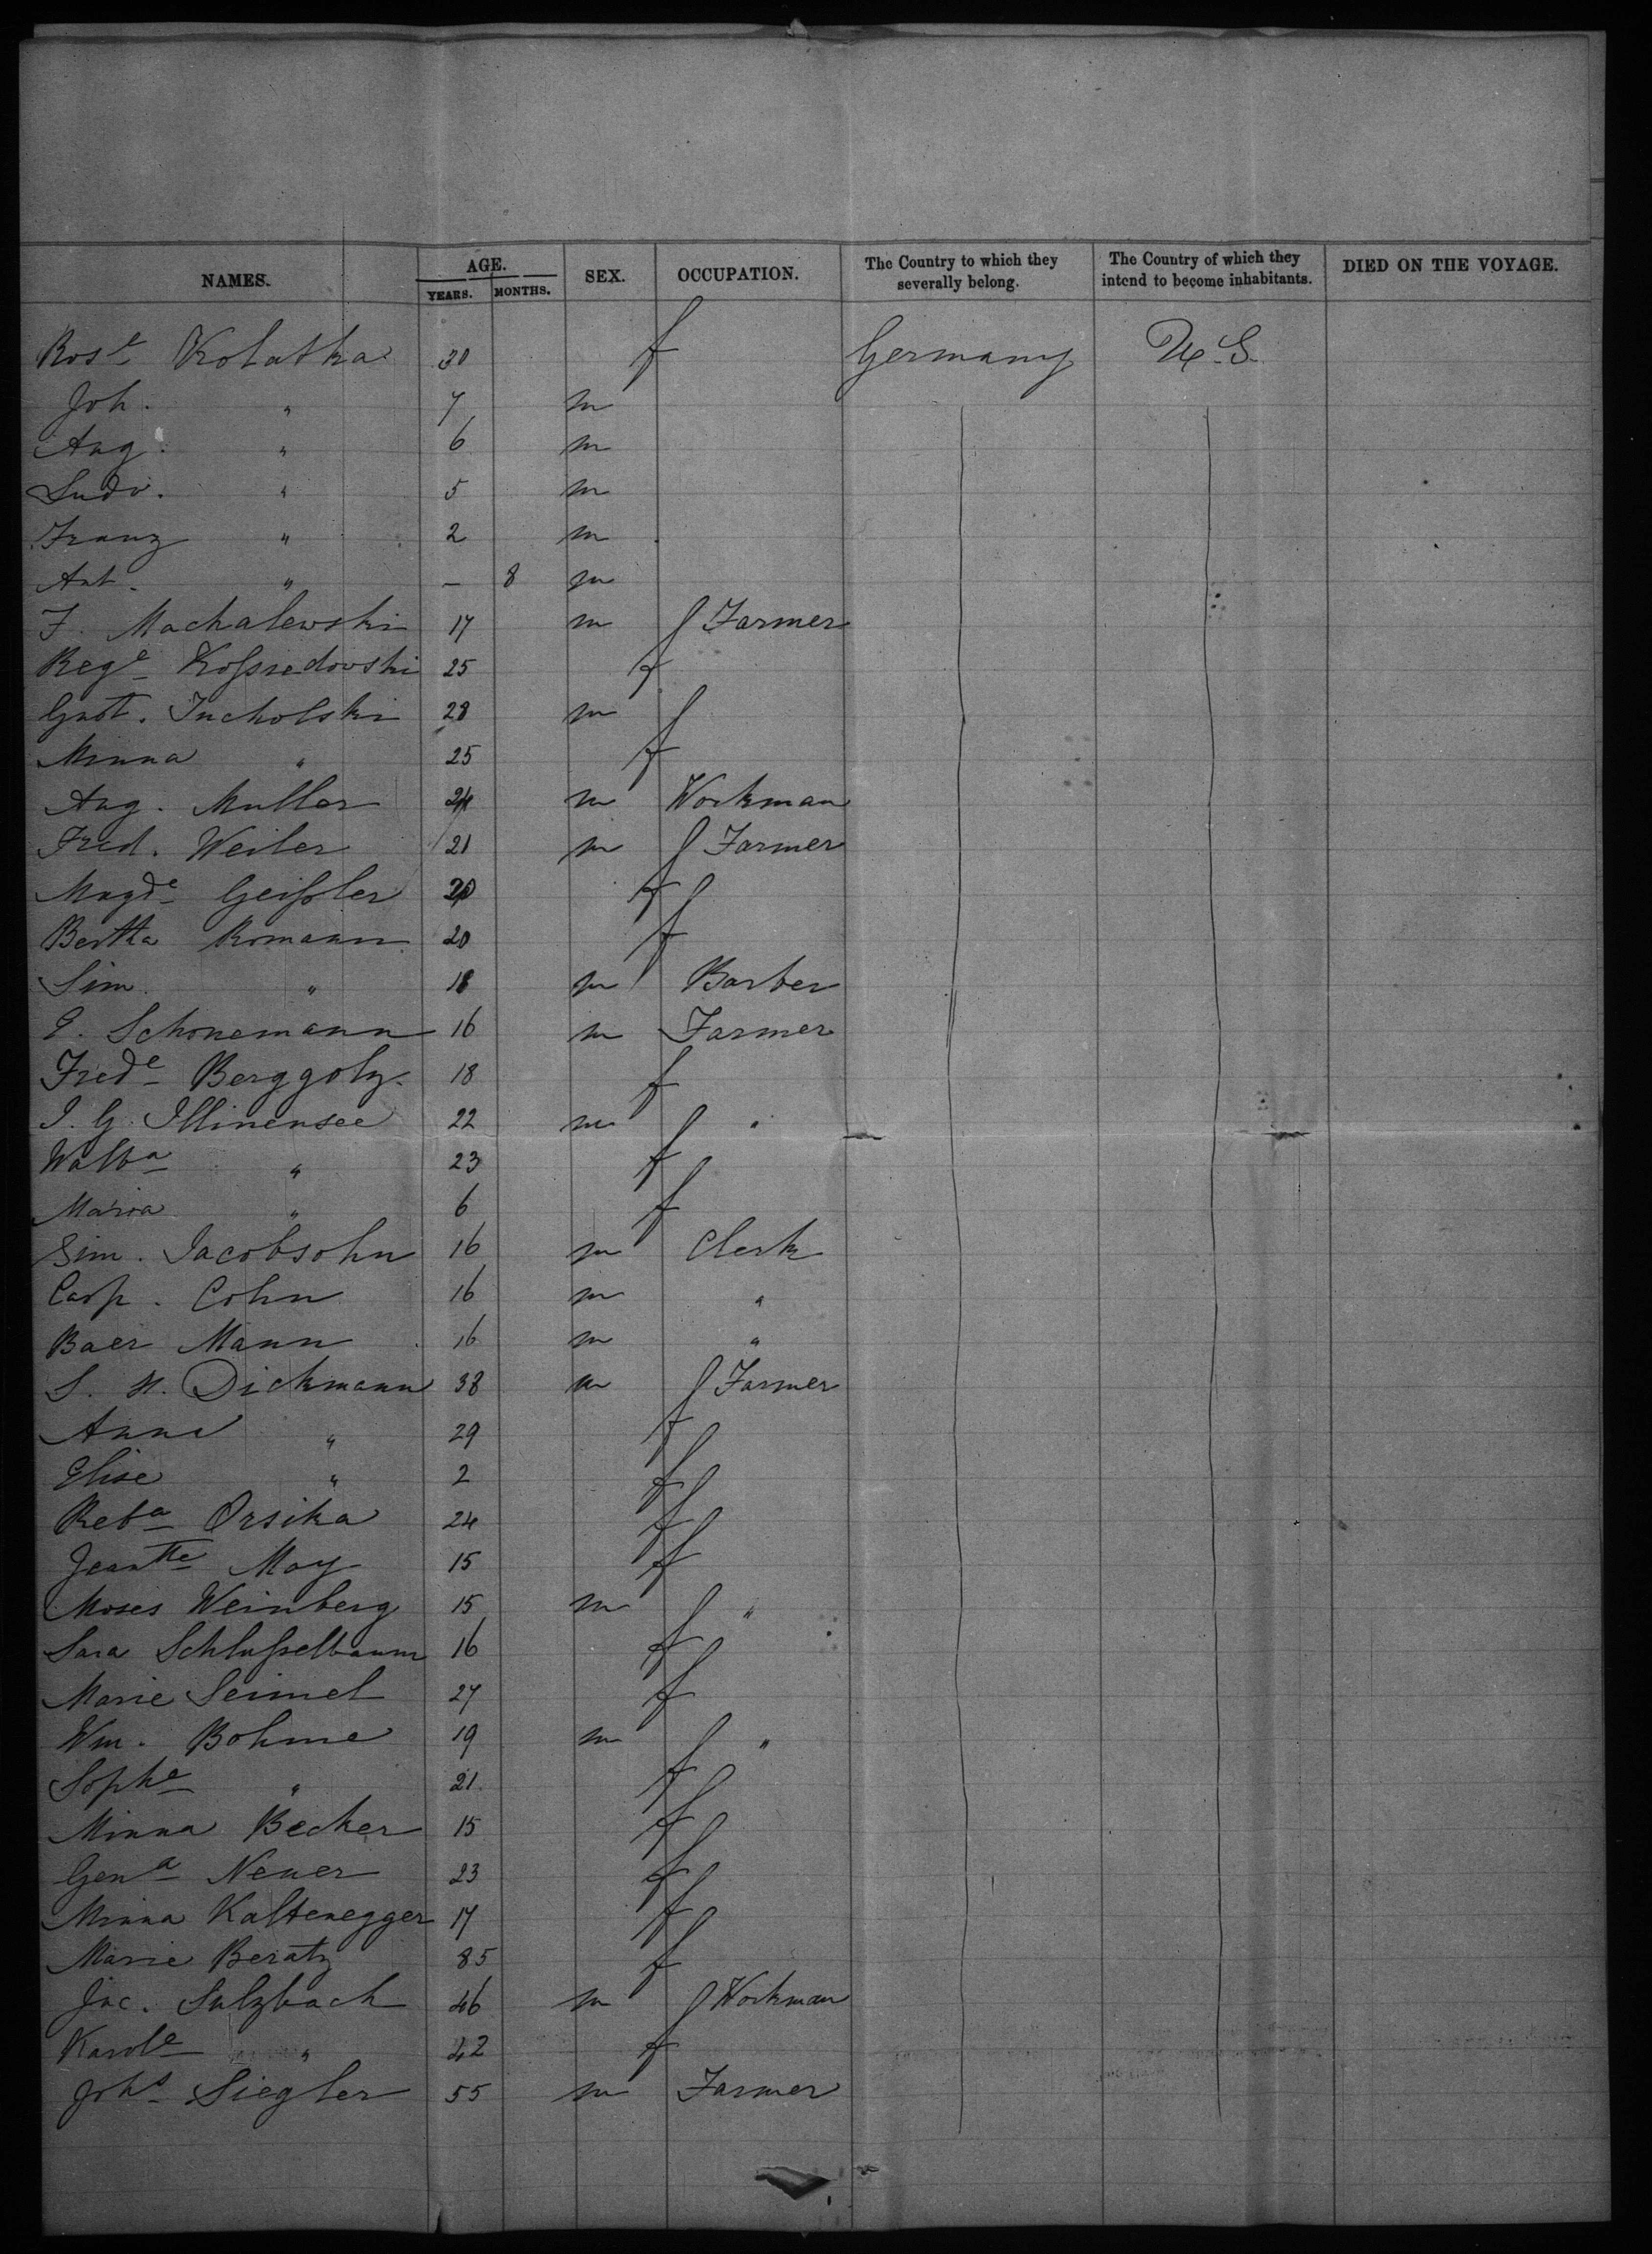 NAMES. AGE. SEX. OCCUPATION. The Country to which they severally belong. The Country of which they intend to become inhabitants. DIED ON THE VOYAGE.
YEARS. MONTHS.
Rose Kolatka 30 f Germany U.S.
Joh. " 7 m
Aug. " 6 m
Ludv. " 5 m
Franz " 2 m
Ant. " — 8 m
F. Machalewski 17 m Farmer
Rege Koßredowski 25 f
Gust. Jucholski 28 m
Minna " 25 f
Aug. Muller 24 m Workman
Fred. Weiler 21 m Farmer
Magde Geißler 20 f
Bertha Romann 20 f
Sim. " 18 m Barber
E. Schonemann 16 m Farmer
Frede Berggolz 18 f
J. G. Illinensee 22 m "
Walba " 23 f
Maria " 6 f
Sim. Jacobsohn 16 m Clerk
Casp. Cohn 16 m "
Baer Mann 16 m "
S. H. Dickmann 38 m Farmer
Anna " 29 f
Elise " 2 f
Reba Orsika 24 f
Jeantte May 15 f
Moses Weinberg 15 m "
Sara Schlußelbaum 16 f
Marie Seimel 27 f
Wm. Bohme 19 m "
Sophe " 21 f
Minna Becker 15 f
Gena Neuer 23 f
Minna Kaltenegger 17 f
Marie Beratz 85 f
Jac. Sulzbach 46 m Workman
Karole " 42 f
Johs Siegler 55 m Farmer